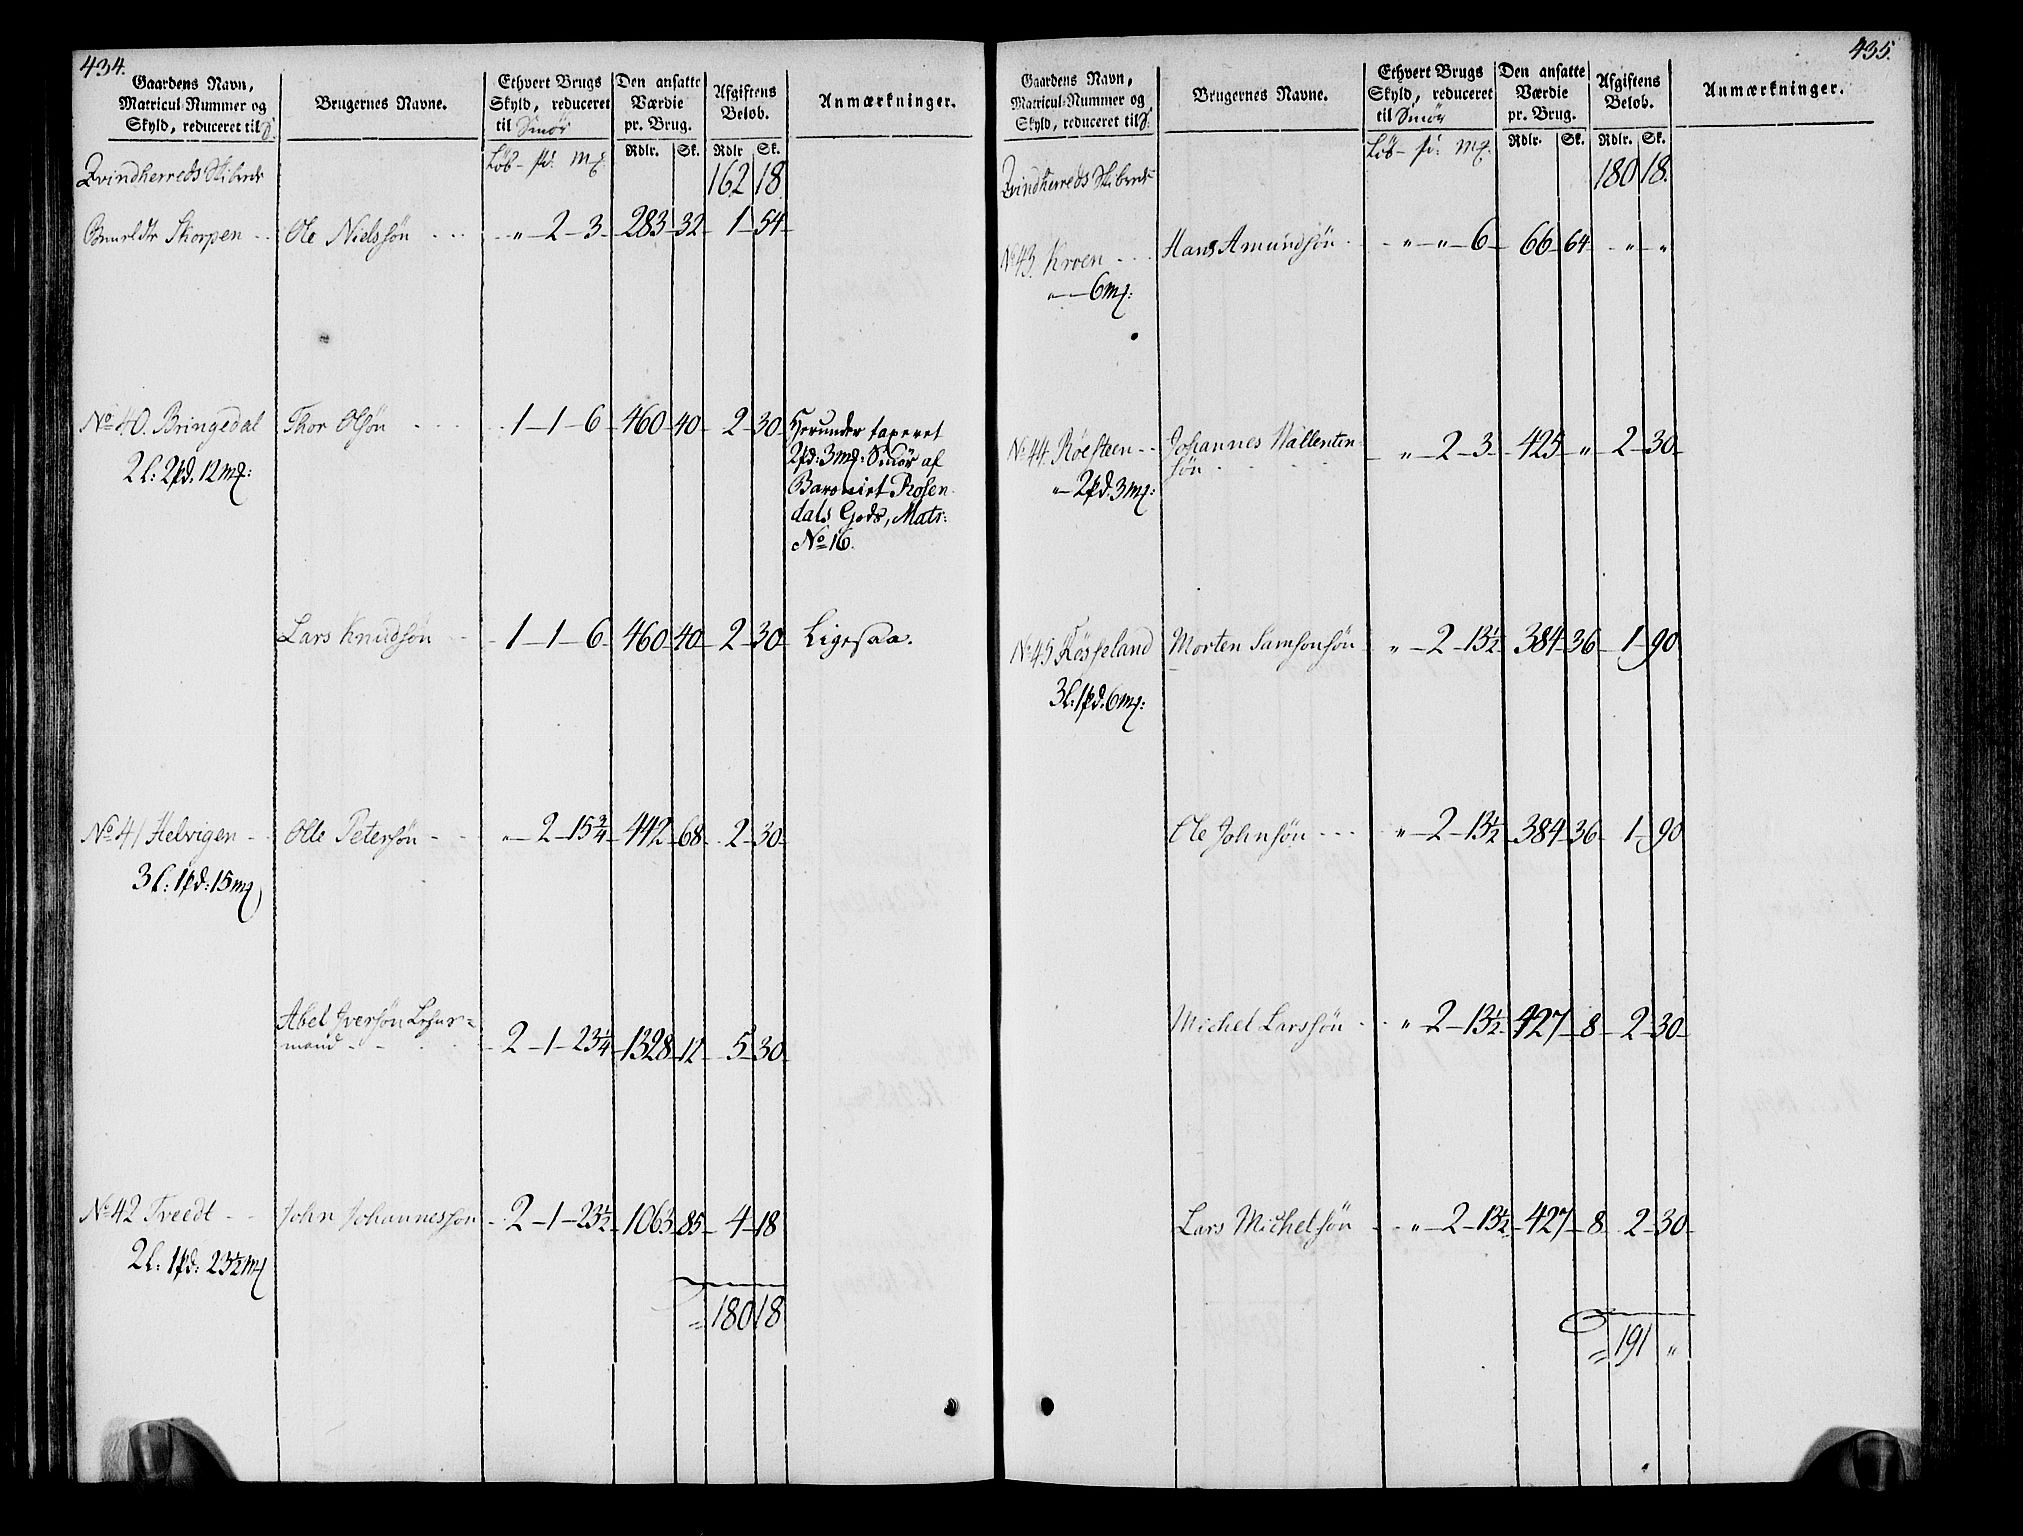 434.
Gaardens Navn,
Matricul-Nummer og
Skyld, reduceret til
Brugernes Navne.
Ethvert Brugs
Skyld, reduceret
til Smör
Den ansatte
Værdie
pr. Brug.
Afgiftens
Beløb.
Anmærkninger.
Löb - pd: Mk:
Rdlr. Sk. Rdlr Sk.
Qvindherreds Skibrede 162 18
Skorpen Ole Nielssön " - 2 - 3 - 283 - 32 - 1 - 54
No 40. Bringedal Thor Olsön 1 - 1 - 6 - 460 - 40 - 2 - 30
2l: 2pd. 12mk:
Herunder taxeret
2pd: 3mk: Smör af
Baroniet Rosen-
dals Gods, Matr:
No 16.
Lars Knudsön - 1 - 1 - 6 - 460 - 40 - 2 - 30 Ligesaa.
No 41 Helvigen - Olle Petersön - " - 2 - 15 3/4 - 442 - 68 - 2 - 30
3l: 1pd: 15mk
Abel Iversön
mand - 2 - 1 - 23 1/4 - 1328 - 12 - 5 - 30
No 42 Treedt - John Johannessön - 2 - 1 - 23 1/2 - 1063 - 85 - 4 - 18
2l: 1pd: 23 1/2 mk
= 180 18
435.
Gaardens Navn,
Matricul-Nummer og
Skyld, reduceret til
Brugernes Navne.
Ethvert Brugs
Skyld, reduceret
til Smör
Den ansatte
Værdie
pr. Brug.
Afgiftens
Beløb.
Anmærkninger.
Löb - pd: Mk:
Rdlr. Sk. Rdlr. Sk.
Qvindherreds Skibrede 180 18.
No 43. Kroen Hans Amundsön - " - " - 6 - 66 - 64 - " - "
" - 6mk:
No 44. Röesteen - Johannes Wallentin
sön - " - 2 - 3 - 425 - " - 2 - 30
" - 2pd. 3mk:
No 45 Fösseland Morten Samsonsön " - 2 - 13 1/2 - 384 - 36 - 1 - 90
3l: 1pd. 6mk:
Ole Johnsön - " - 2 - 13 1/2 - 384 - 36 - 1 - 90
Michel Larssön - " - 2 - 13 1/2 - 427 - 8 - 2 - 30
Lars Michelsön - " - 2 - 13 1/2 - 427 - 8 - 2 - 30
= 191 "